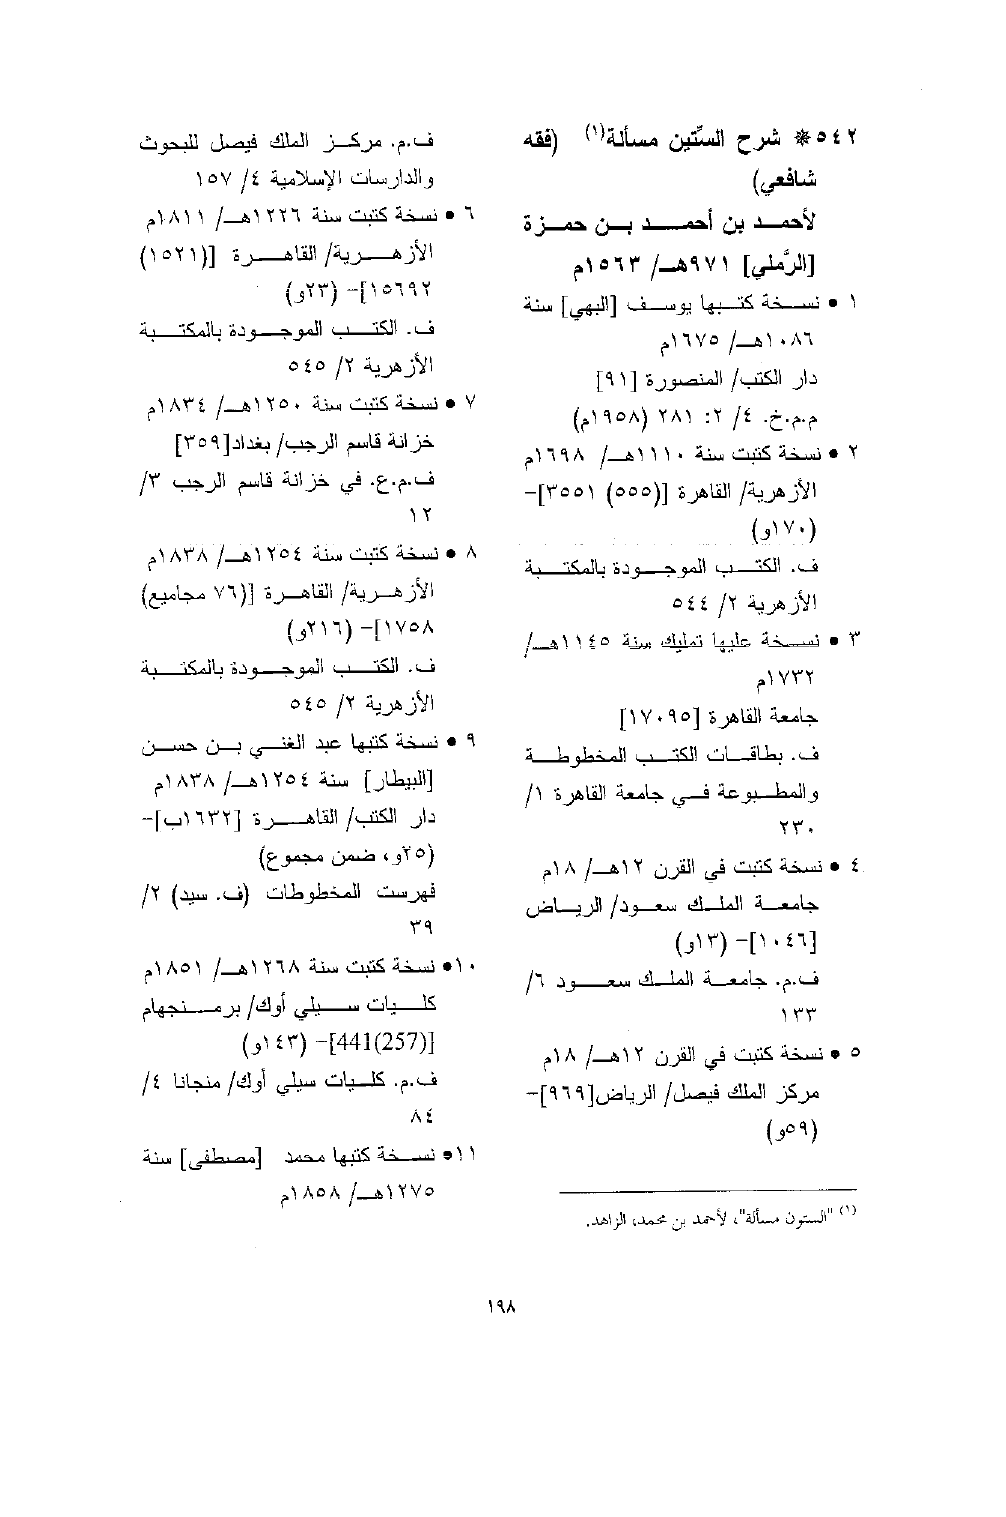 ٥٤٢* شرح الستِّين مسألة(١) (فقه
شافعي)
لأحمـــد بن أحمـــد بـــن حمـــزة
[الرَّملي] ٩٧١هـ/ ١٥٦٣م
١ • نســخة كتــبها يوســف [البهي] سنة
١٠٨٦هـ/ ١٦٧٥م
دار الكتب/ المنصورة [٩١]
م.م.خ. ٤/ ٢: ٢٨١ (١٩٥٨م)
٢ • نسخة كتبت سنة ١١١٠هـ/ ١٦٩٨م
الأزهرية/ القاهرة [(٥٥٥) ٣٥٥١]-
(١٧٠و)
ف. الكتـــب الموجـــودة بالمكتـــبة
الأزهرية ٢/ ٥٤٤
٣ • نســخة عليها تمليك سنة ١١٤٥هـ/
١٧٣٢م
جامعة القاهرة [١٧٠٩٥]
ف. بطاقـــات الكتـــب المخطوطـــة
والمطـــبوعة فـــي جامعة القاهرة ١/
٢٣٠
٤ • نسخة كتبت في القرن ١٢هـ/ ١٨م
جامعـــة الملـــك سعـــود/ الريـــاض
[١٠٤٦]- (١٣و)
ف.م. جامعـــة الملـــك سعـــود ٦/
١٣٣
٥ • نسخة كتبت في القرن ١٢هـ/ ١٨م
مركز الملك فيصل/ الرياض[٩٦٩]-
(٥٩و)
(١) "الستون مسألة"، لأحمد بن محمد، الزاهد.
ف.م. مركـــز الملك فيصل للبحوث
والدارسات الإسلامية ٤/ ١٥٧
٦ • نسخة كتبت سنة ١٢٢٦هـ/ ١٨١١م
الأزهـــرية/ القاهـــرة [(١٥٢١)
١٥٦٩٢]- (٢٣و)
ف. الكتـــب الموجـــودة بالمكتـــبة
الأزهرية ٢/ ٥٤٥
٧ • نسخة كتبت سنة ١٢٥٠هـ/ ١٨٣٤م
خزانة قاسم الرجب/ بغداد[٣٥٩]
ف.م.ع. في خزانة قاسم الرجب ٣/
١٢
٨ • نسخة كتبت سنة ١٢٥٤هـ/ ١٨٣٨م
الأزهـــرية/ القاهـــرة [(٧٦ مجاميع)
١٧٥٨]- (٢١٦و)
ف. الكتـــب الموجـــودة بالمكتـــبة
الأزهرية ٢/ ٥٤٥
٩ • نسخة كتبها عبد الغنـــي بـــن حســـن
[البيطار] سنة ١٢٥٤هـ/ ١٨٣٨م
دار الكتب/ القاهـــرة [١٦٣٢ب]-
(٢٥و، ضمن مجموع)
فهرست المخطوطات (ف. سيد) ٢/
٣٩
١٠• نسخة كتبت سنة ١٢٦٨هـ/ ١٨٥١م
كلـــيات ســـيلي أوك/ برمـــنجهام
[441(257)]- (١٤٣و)
ف.م. كلـــيات سيلي أوك/ منجانا ٤/
٨٤
١١• نســـخة كتبها محمد [مصطفى] سنة
١٢٧٥هـ/ ١٨٥٨م
١٩٨